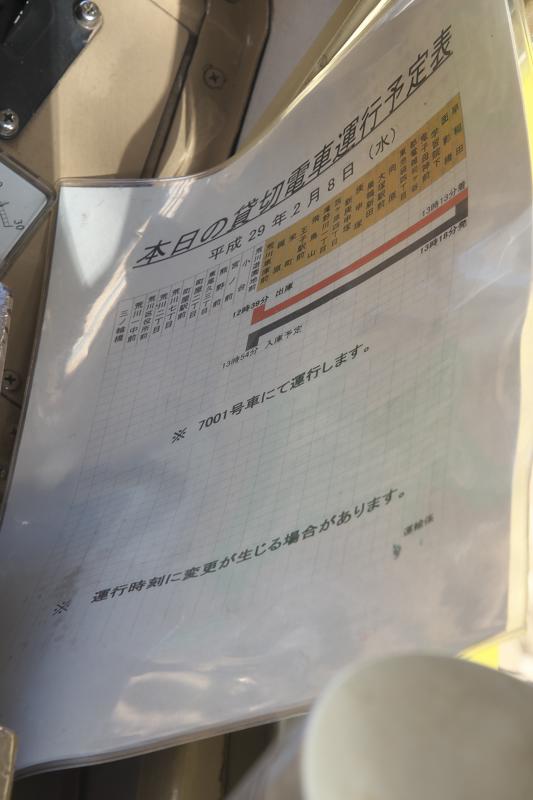 本日の貸切電車運行予定表
平成 29 年 2 月 8 日 (水)
三ノ輪橋
荒川一中前
荒川区役所前
荒川二丁目
荒川七丁目
町屋駅前
町屋二丁目
東尾久三丁目
熊野前
宮ノ前
小台
荒川遊園地前
荒川車庫前
梶原
栄町
王子駅前
飛鳥山
滝野川一丁目
西ヶ原四丁目
新庚申塚
庚申塚
巣鴨新田
大塚駅前
向原
東池袋四丁目
都電雑司ヶ谷
鬼子母神前
学習院下
面影橋
早稲田
12時39分 出庫
13時13分着
13時18分発
13時54分 入庫予定
※ 7001号車にて運行します。
※ 運行時刻に変更が生じる場合があります。
運輸係
30